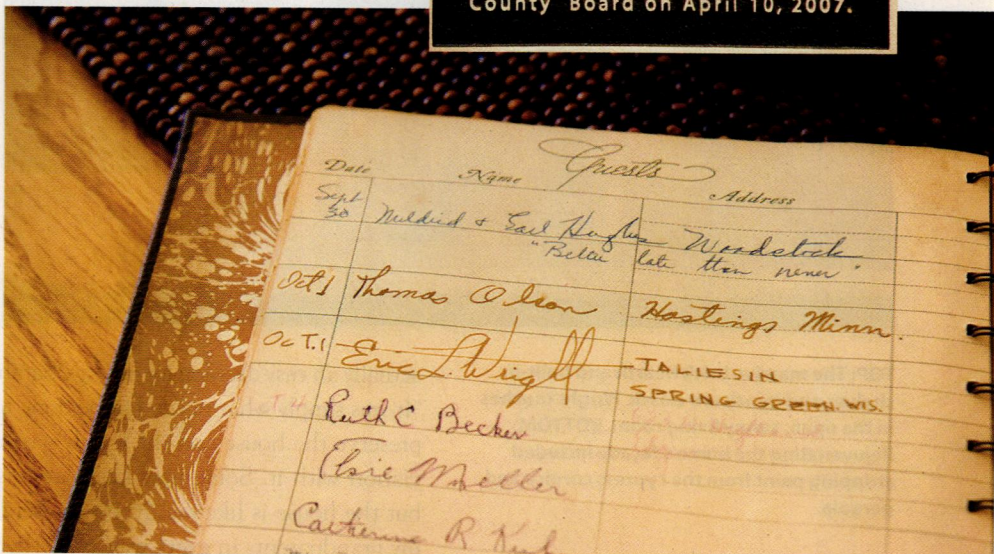 County Board on April 10, 2007.
Guests
Date Name Address
Sept 30 Mildred & Earl Hughes Woodstock
"Better late than never"
Oct 1 Thomas Olson Hastings Minn.
Oct. 1 Eric L. Wright TALIESIN
SPRING GREEN. WIS.
Ruth C Becker
Elsie Moeller
Catherine R